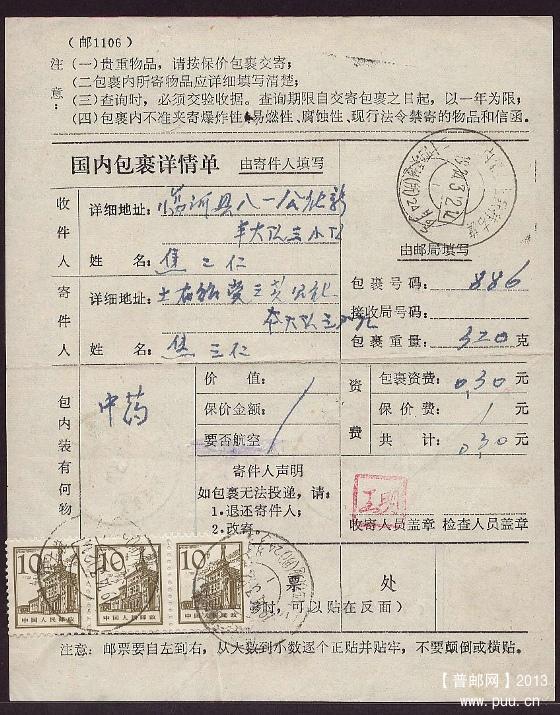 （邮1106）
注意：
（一）贵重物品，请按保价包裹交寄；
（二）包裹内所寄物品应详细填写清楚；
（三）查询时，必须交验收据。查询期限自交寄包裹之日起，以一年为限；
（四）包裹内不准夹寄爆炸性、易燃性、腐蚀性、现行法令禁寄的物品和信函。
国内包裹详情单 由寄件人填写
收件人
详细地址：临河县八一公社新
丰大队三小队
姓名：焦二仁
寄件人
详细地址：土右
大队
姓名：焦三仁
由邮局填写
包裹号码：886
接收局号码：
包裹重量：320克
包内装有何物
中药
价值：
保价金额：
要否航空
寄件人声明
如包裹无法投递，请：
1.退还寄件人；
2.改寄.
资费
包裹资费：0.30元
保价费：/元
共计：0.30元
收寄人员盖章 检查人员盖章
10 10 10
中国人民邮政 中国人民邮政 中国人民邮政
票处
时，可以贴在反面）
注意：邮票要自左到右，从大数到小数逐个正贴并贴牢，不要颠倒或横贴。
【普邮网】2013
www.puu.cn